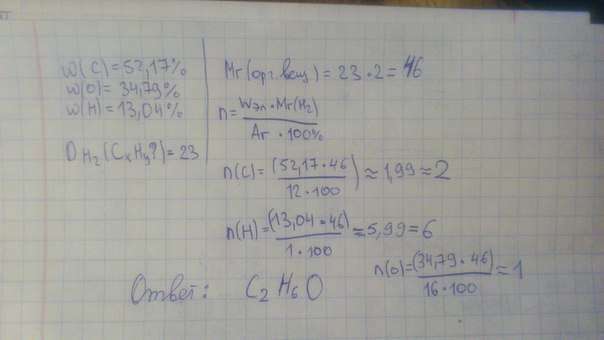 w(C) = 52,17%
w(O) = 34,79%
w(H) = 13,04%
D H₂ (CₓHᵧ?) = 23
Mr(орг.вещ) = 23 · 2 = 46
n = Wэл · Mr(H₂) / Ar · 100%
n(C) = (52,17 · 46) / 12 · 100 ≈ 1,99 ≈ 2
n(H) = (13,04 · 46) / 1 · 100 ≈ 5,99 = 6
n(O) = (34,79 · 46) / 16 · 100 = 1
Ответ: C₂H₆O